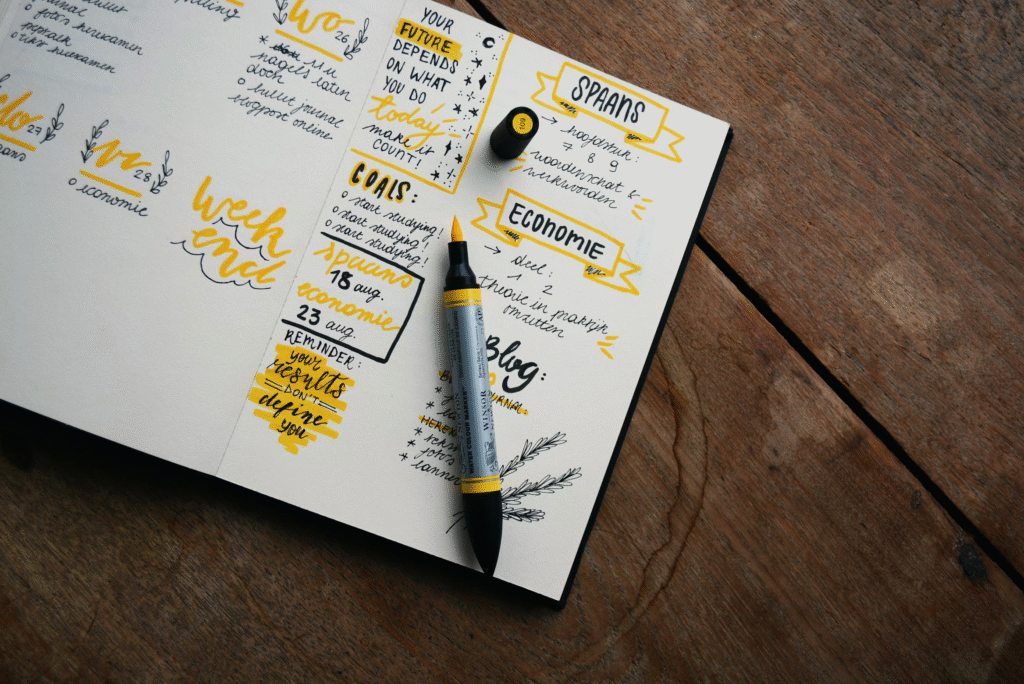 o fotos herexamen
herexamen
wo 26
nagels laten
doen
o bullet journal
blogpost online
27
vr 28
o economie
week
end
YOUR
FUTURE
DEPENDS
ON WHAT
YOU DO
today
make it
COUNT!
GOALS:
o start studying!
o start studying!
o start studying!
spaans
18 aug.
economie
23 aug.
REMINDER:
your
results
DON'T
define
you
SPAANS
→ hoofdstuk:
7 8 9
woordenschat &
werkwoorden
ECONOMIE
→ deel:
1 2
theorie in praktijk
omzetten
Blog:
WINSOR